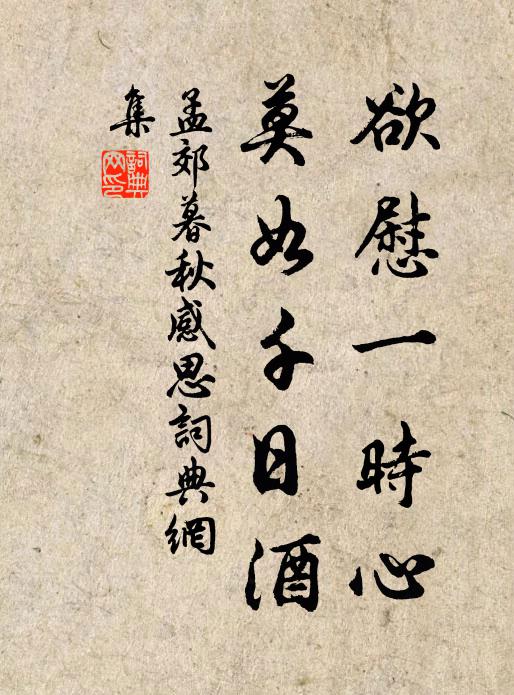 欲慰一時心
莫如千日酒
孟郊暮秋感思詞典網
集
詞典網印